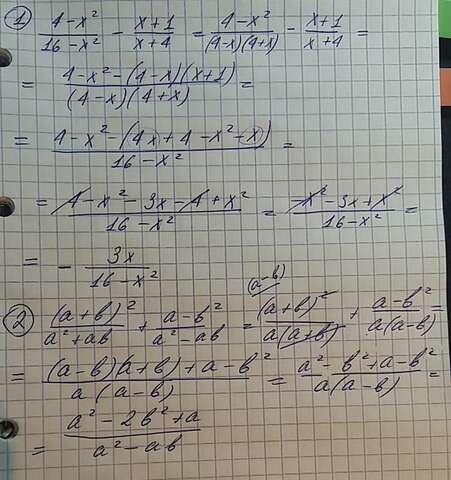 ① (4-x²)/(16-x²) - (x+1)/(x+4) = (4-x²)/((4-x)(4+x)) - (x+1)/(x+4) =
= (4-x²-(4-x)(x+1))/((4-x)(4+x)) =
= (4-x²-(4x+4-x²-x))/(16-x²) =
= (4-x²-3x-4+x²)/(16-x²) = (-x²-3x+x²)/(16-x²) =
= - 3x/(16-x²)
② (a+b)²/(a²+ab) + (a-b²)/(a²-ab) = (a-b) (a+b)²/(a(a+b)) + (a-b²)/(a(a-b)) =
= ((a-b)(a+b)+a-b²)/(a(a-b)) = (a²-b²+a-b²)/(a(a-b)) =
= (a²-2b²+a)/(a²-ab)